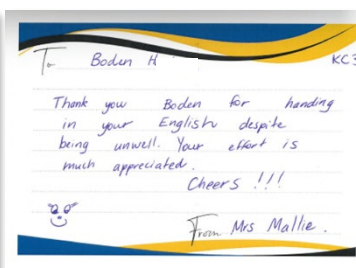 To Boden H KC3
Thank you Boden for handing
in your English despite
being unwell. Your effort is
much appreciated.
Cheers !!!
From Mrs Mallie.